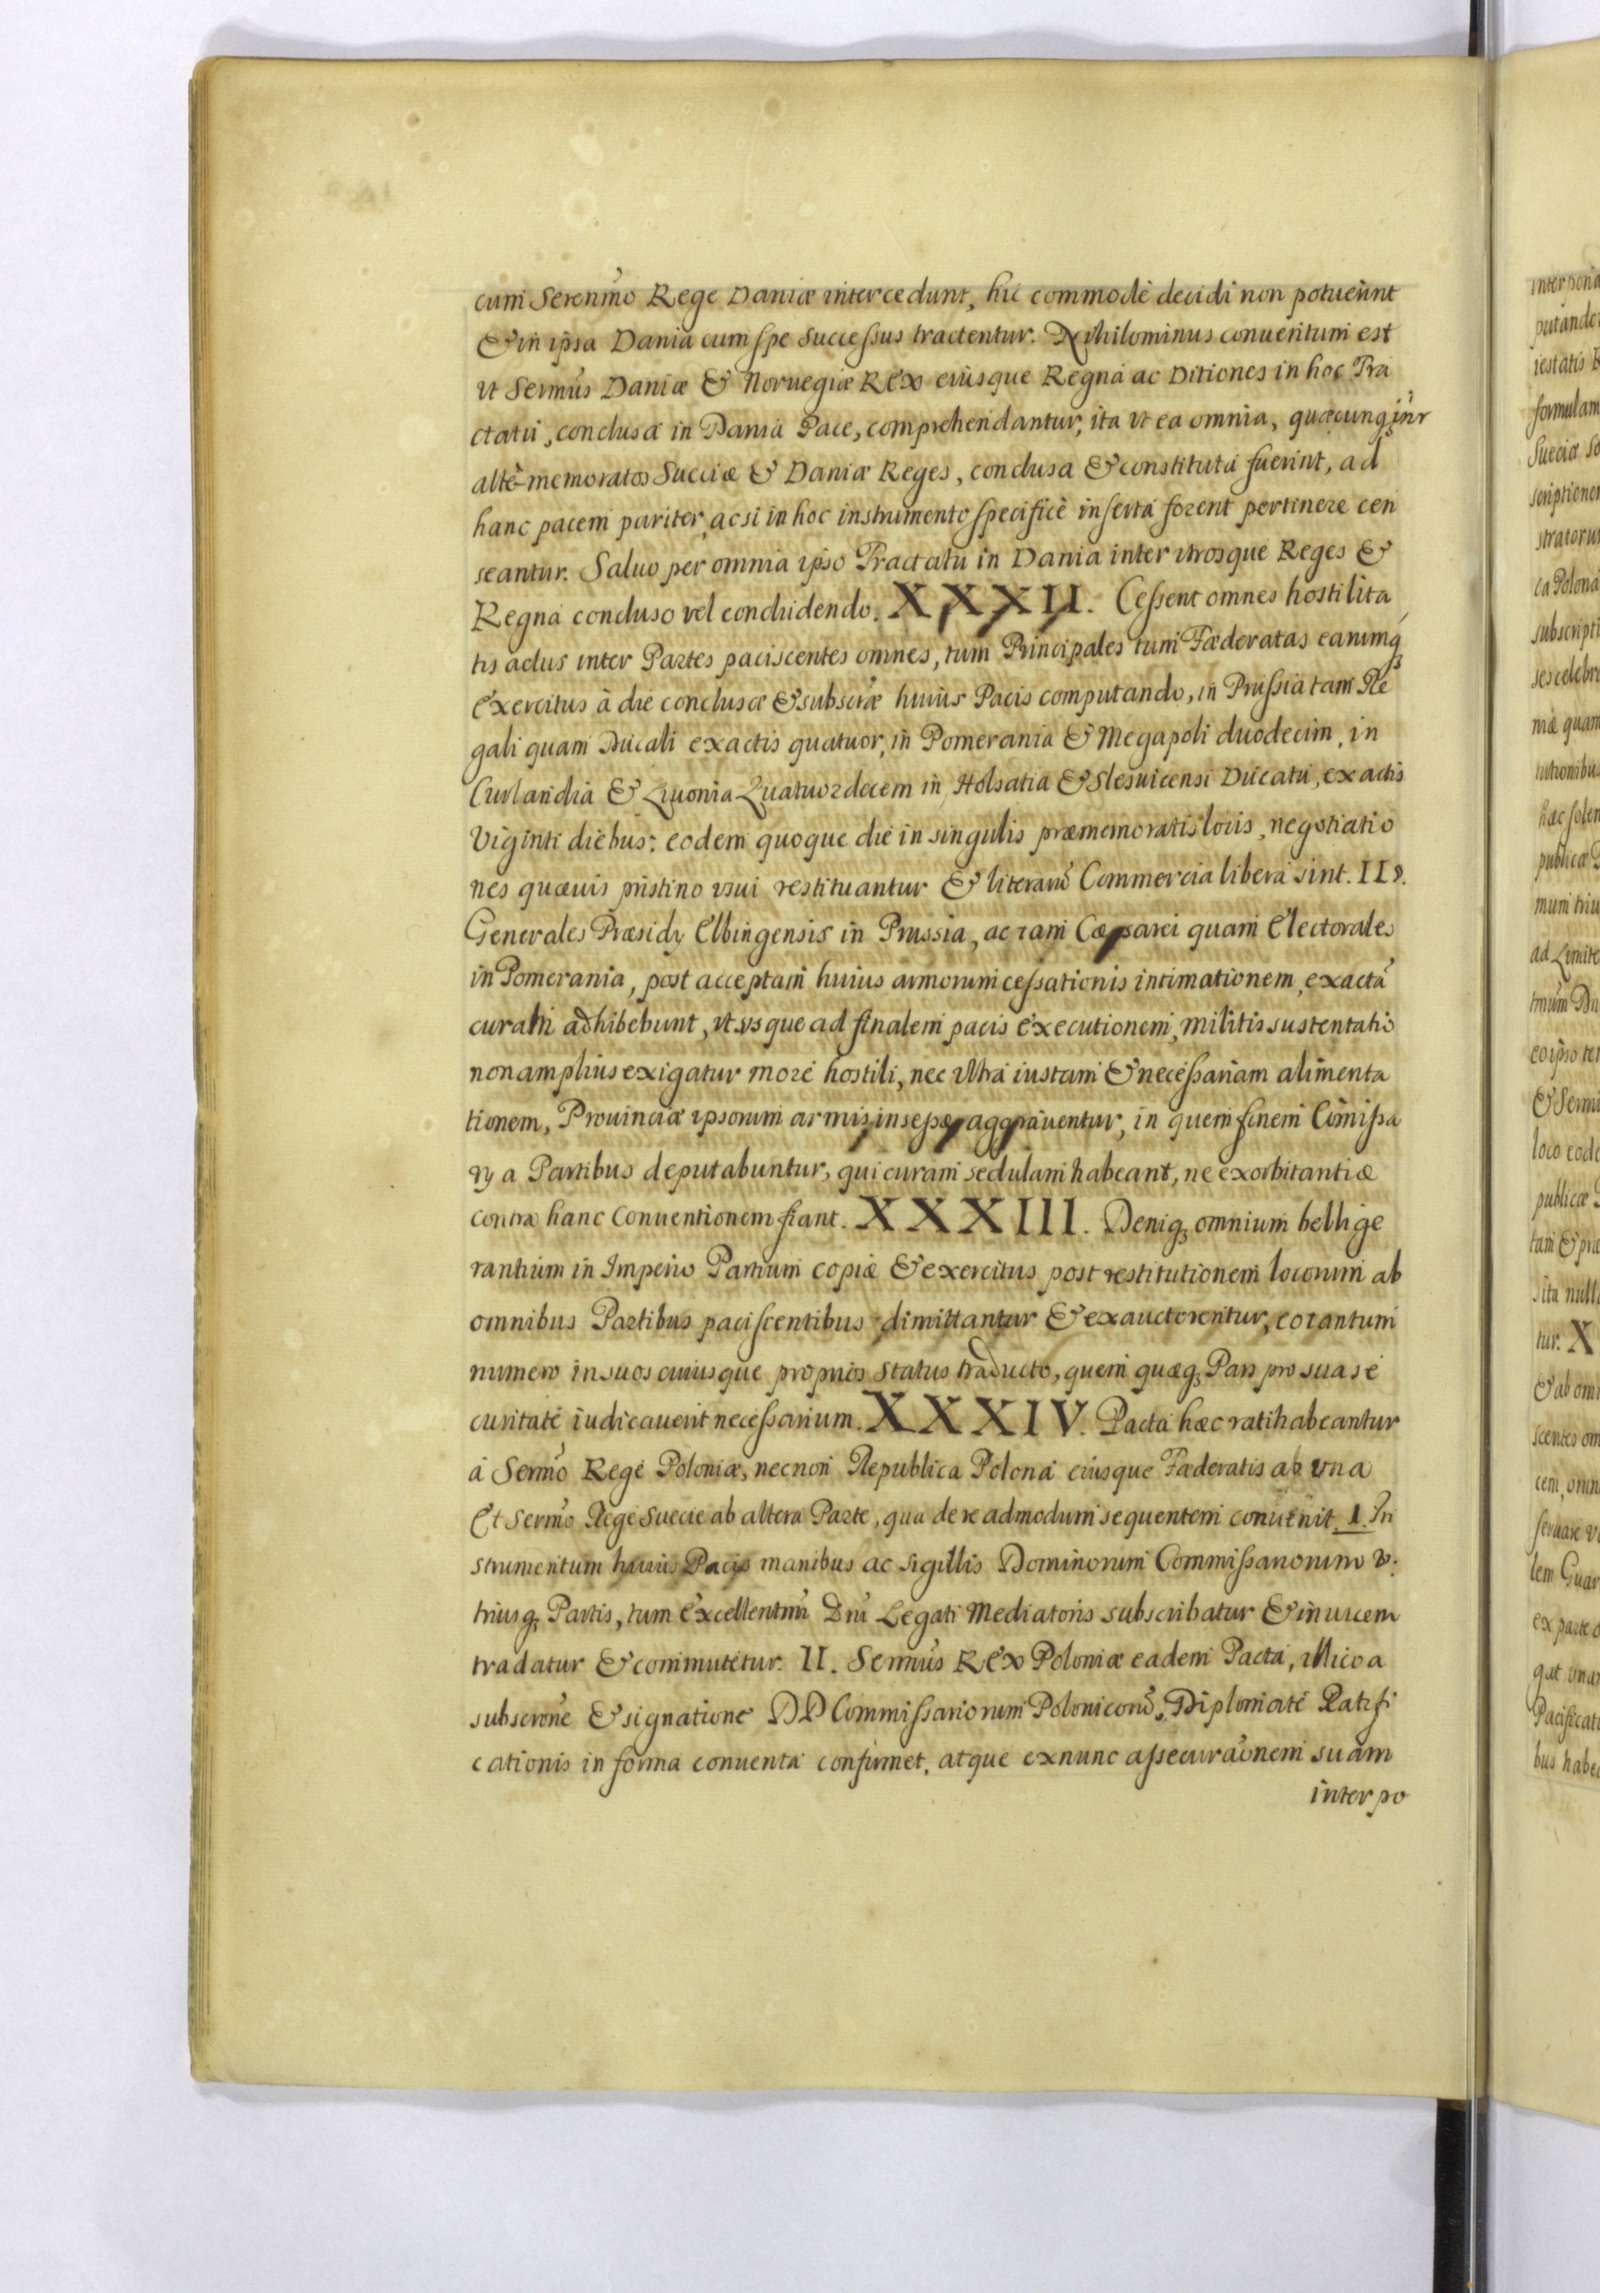 cum Serenmo Rege Daniæ intercedunt, hic commodè decidi non potuerint
& in ipsa Dania cum spe successus tractentur. Nihilominus conuentum est
vt Sermus Daniæ & Noruegiæ REX eiusque Regna ac Ditiones in hoc Tra
ctatu, conclusa in Dania Pace, comprehendantur, ita vt ea omnia, quæcunq; intr
altè-memoratos Sueciæ & Daniæ Reges, conclusa & constituta fuerint, ad
hanc pacem pariter, acsi in hoc instrumento specificè inserta forent pertinere cen
seantur. Saluo per omnia ipso Tractatu in Dania inter vtrosque Reges &
Regna concluso vel concludendo. XXXII. Cessent omnes hostilita
tis actus inter Partes paciscentes omnes, tum Principales tum Fæderatas earumq;
exercitus à die conclusæ & subscræ huius Pacis computando, in Prussia tam Re
gali quam Ducali exactis quatuor, in Pomerania & Megapoli duodecim, in
Curlandia & Liuonia Quatuordecem in Holsatia & Slesuicensi Ducatu, exactis
Viginti diebus: eodem quoque die in singulis præmemoratis locis, negotiatio
nes quæuis pristino vsui restituantur & literarũ Commercia libera sint. IIs.
Generales Præsidy Elbingensis in Prussia, ac tam Cæsarei quam Electorales
in Pomerania, post acceptam huius armorum cessationis intimationem, exactã
curam adhibebunt, vt vsque ad finalem pacis executionem, militis sustentatio
non amplius exigatur more hostili, nec vltra iustam & necessariam alimenta
tionem, Prouinciæ ipsorum armis insessæ aggrauentur, in quem finem Comissa
ry a Partibus deputabuntur, qui curam sedulam habeant, ne exorbitantiæ
contra hanc Conuentionem fiant. XXXIII. Deniq; omnium bellige
rantium in Imperio Partium copiæ & exercitus post restitutionem locorum ab
omnibus Partibus paciscentibus dimittantur & exauctorentur, eo tantum
numero in suos cuiusque proprios status traducto, quem quæq; Pars pro sua se
curitate iudicauerit necessarium. XXXIV. Pacta hæc ratihabeantur
á Sermo Rege Poloniæ, necnon Republica Polona eiusque Fæderatis ab vna
Et Sermo Rege Sueciæ ab altera Parte, qua de re ad modum sequentem conuenit, I. In
strumentum huius Pacis manibus ac sigillis Dominorum Commissariorum v:
triusq; Partis, tum Excellentmi Dni Legati Mediatoris subscribatur & inuicem
tradatur & commutetur. II. Sermus REX Poloniæ eadem Pacta, illico a
subscrone & signatione DD Commissariorum Polonicorũ, Diplomate Ratifi
cationis in forma conuenta confirmet, atque exnunc assecuraonem suam
interpo